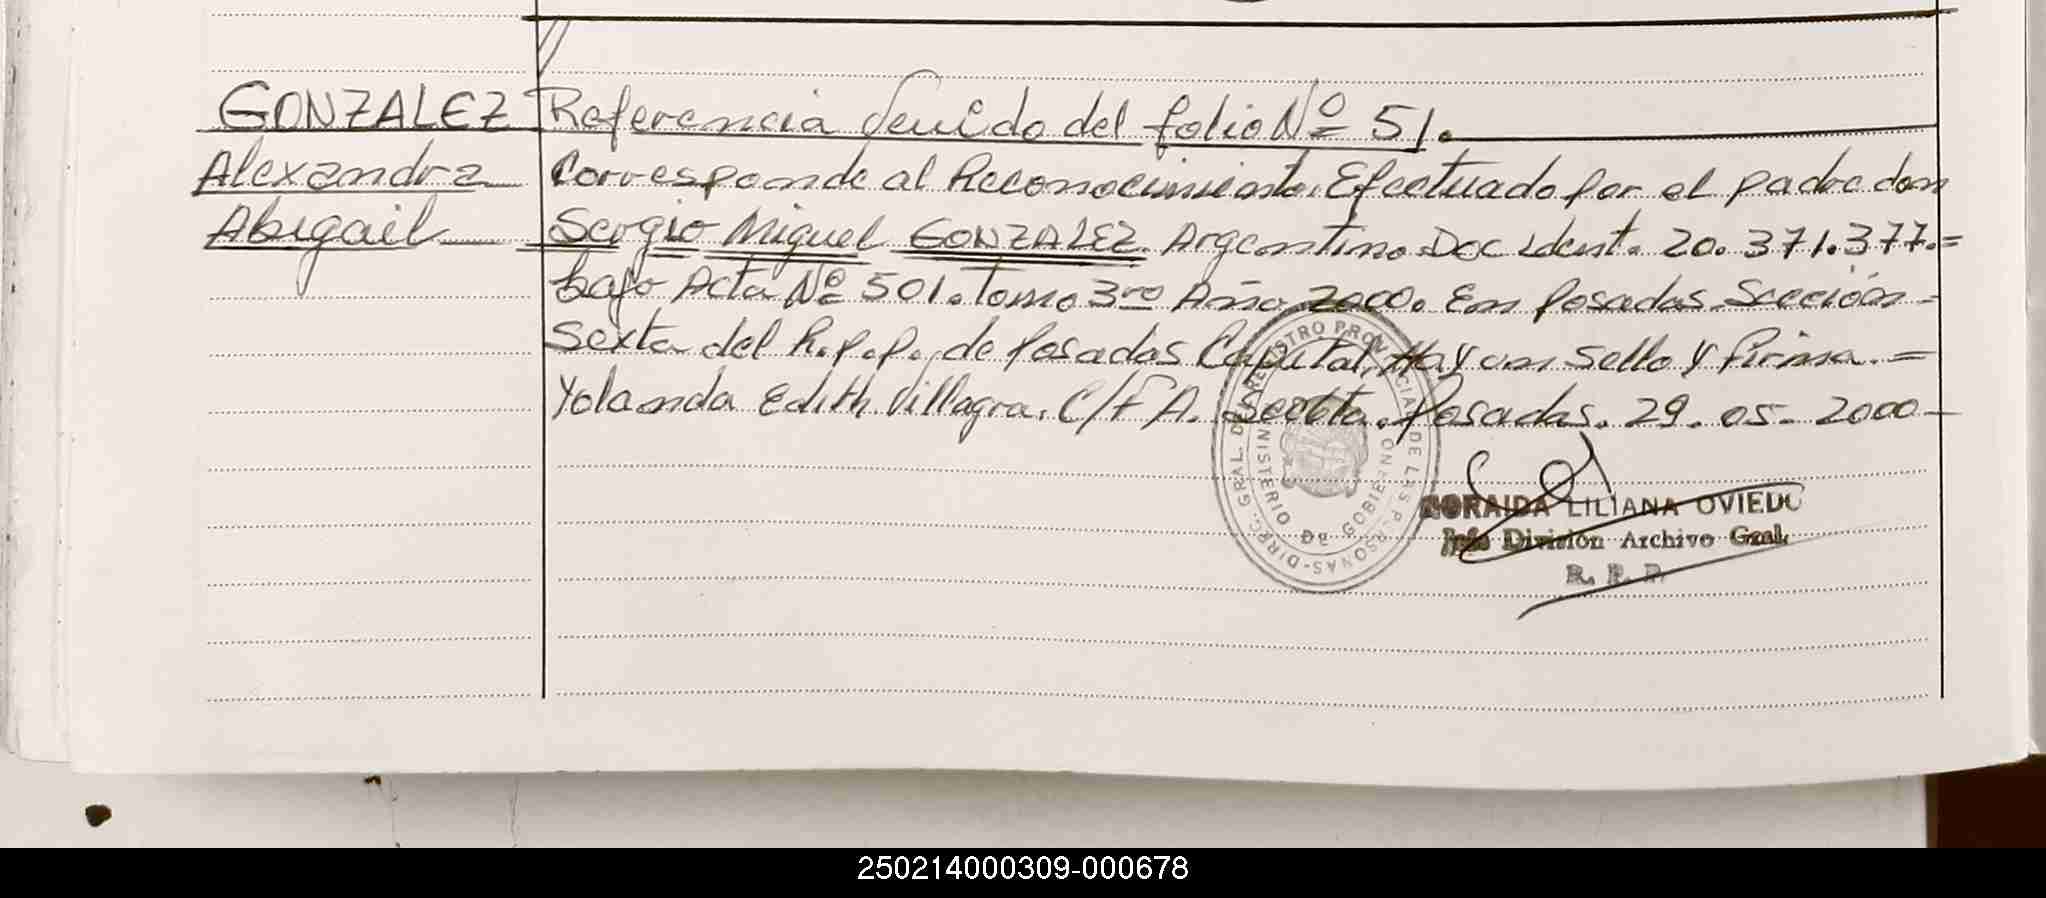 GONZALEZ Referencia Venido del folio Nº 51.
Alexandra Corresponde al Reconocimiento Efectuado por el padre don
Abigail Sergio Miguel GONZALEZ Argentino Doc Ident. 20.371.377.=
bajo Acta Nº 501. Tomo 3ro Año 2000. En Posadas Sección =
Sexta del R.P.P. de Posadas Capital, Hay un Sello y firma. =
Yolanda Edith Villagra. C/F A. Posadas. 29. 05- 2000-
DIREC. GRAL. DEL REGISTRO PROVINCIAL DE LAS PERSONAS
MINISTERIO DE GOBIERNO
LILIANA OVIEDO
Jefe División Archivo Gral.
R. P. P.
250214000309-000678